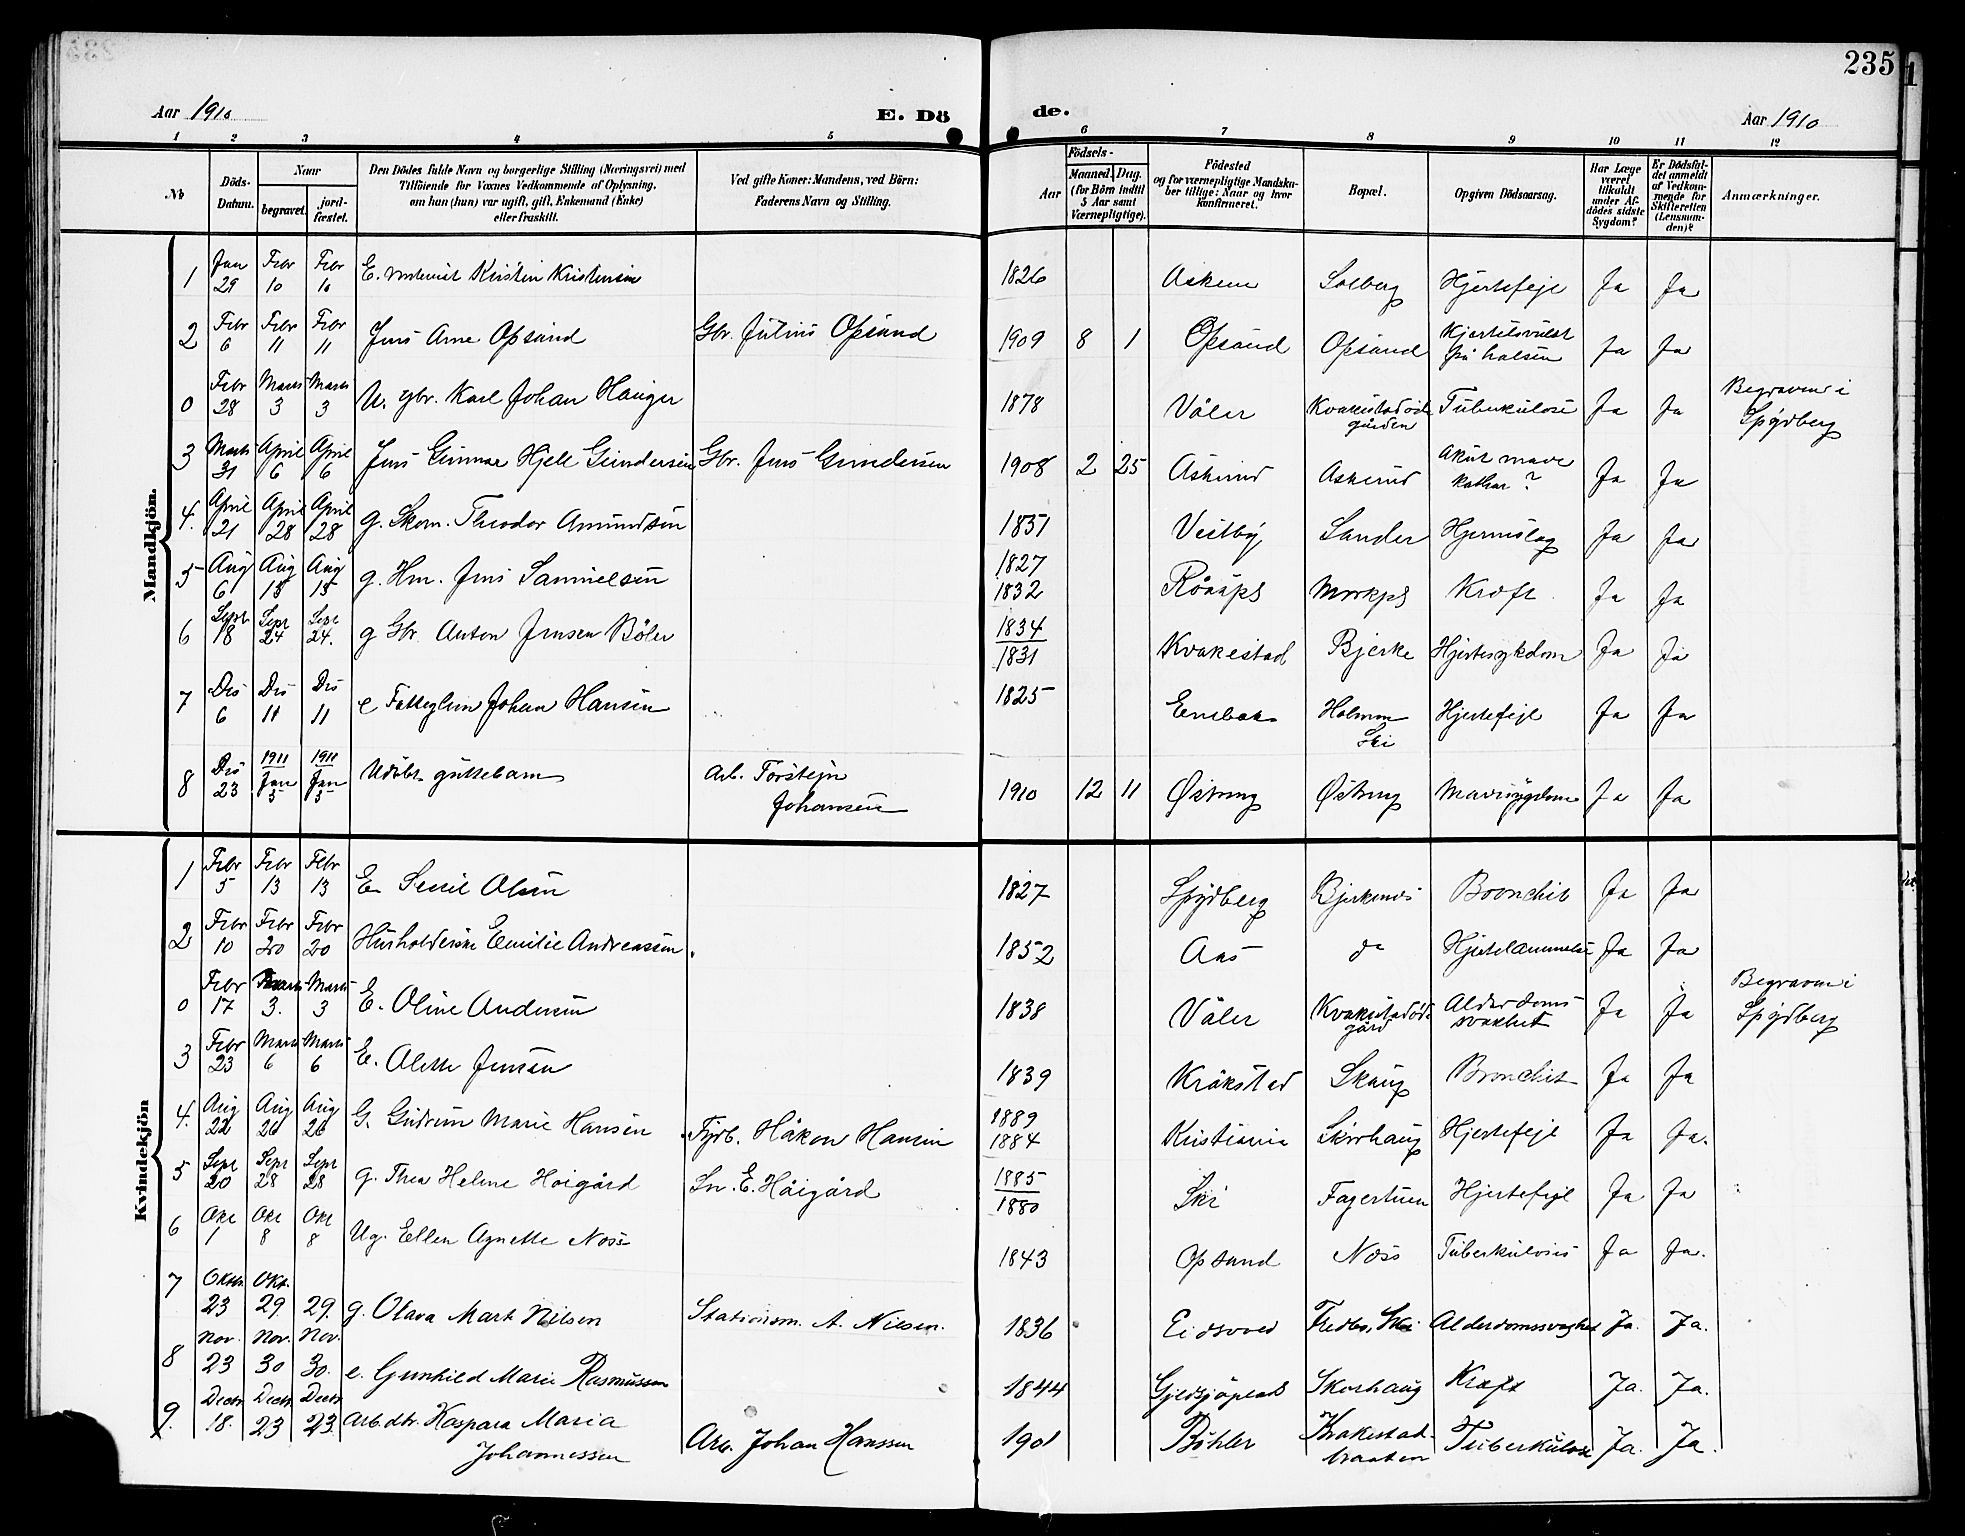 235
Aar 1910
E. Dö
de.
Aar 1910
1 2 3 4 5 6 7 8 9 10 11 12
No
Döds-
Datum.
Naar
begravet.
jord-
fæstet.
Den Dödes fulde Navn og borgerlige Stilling (Næringsvei) med
Tilföiende for Voxnes Vedkommende af Oplysning,
om han (hun) var ugift, gift, Enkemand (Enke)
eller fraskilt.
Ved gifte Koner: Mandens, ved Börn:
Faderens Navn og Stilling.
Födsels-
Aar
Maaned. Dag.
(for Börn indtil
5 Aar samt
Værnepligtige).
Födested
og for værnepligtige Mandska-
ber tillige: Naar og hvor
konfirmeret.
Bopæl.
Opgiven Dödsaarsag.
Har Læge
været
tilkaldt
under Af-
dödes sidste
Sygdom?
Er Dödsfal-
det anmeldt
af Vedkom-
mende for
Skifteretten
(Lensman-
den)?
Anmærkninger.
Mandkjön.
1 Jan 29 Febr 10 Febr 10 E. Kristen Kristensen 1826 Askim Solberg Hjertefejl Ja Ja
2 Febr 6 Febr 11 Febr 11 Jens Arne Opsand Gbr. Julius Opsand 1909 8 1 Opsand Opsand Kjertelsvulst på halsen Ja Ja
0 Febr 28 Marts 3 Marts 3 U. gbr. Karl Johan Hauger 1878 Våler Kvakestadöde gården Tuberkulose Ja Ja Begraven i Spydberg
3 Marts 31 April 6 April 6 Jens Gunnar Hjell Gundersen Gbr. Jens Gundersen 1908 2 25 Askerud Askerud Akut mave kathar? Ja Ja
4. April 21 April 28 April 28 g. Skom. Theodor Amundsen 1851 Vestby Sander Hjerneslag Ja Ja
5 Aug 6 Aug 15 Aug 15 g. Hm. Jens Samuelsen 1827 1832 Kræft Ja Ja
6 Septr 18 Sept 24 Sept 24. g Gbr. Anton Jensen Böler 1834 1831 Kvakestad Bjerke Hjertesykdom Ja Ja
7 Des 6 Des 11 Des 11 e Fattiglem Johan Hansen 1825 Enebak Holmen Ski Hjertefejl Ja Ja
8 Des 23 1911 Jan 5 1911 Jan 5 Udöbt guttebarn Arb. Torstejn Johansen 1910 12 11 Østreng Østreng Mavesygdom Ja Ja
Kvindekjön
1 Febr 5 Febr 13 Febr 13 E. Olsen 1827 Spydberg Bjerkenes Bronchit Ja Ja
2 Febr 10 Febr 20 Febr 20 Husholderske Emilie Andreassen. 1852 Aas do Hjertelammelse Ja Ja
0 Febr 17 Marts 3. Marts 3 E. Oline Andersen 1838 Våler Kvakestadöde gård Alderdoms- svakhet Ja Ja Begraven i Spydberg
3 Febr 23 Marts 6 Marts 6 E. Alette Jensen 1839 Kråkstad Skaug Bronchit Ja Ja
4. Aug 22 Aug 26 Aug 26 G. Gudrun Marie Hansen Fyrb. Håkon Hansen 1889 1884 Kristiania Skorhaug Hjertefejl Ja Ja.
5 Sept 20 Sept 28 Sept 28 g. Thea Helene Höigård Sn. E. Höigård 1885 1880 Ski Fagertuen Hjertefejl Ja Ja
6 Okt 1 Okt 8 Okt 8 Ug. Ellen Agnette Næss 1843 Opsand Næss Tuberkulosis Ja Ja.
7 Oktbr 23 Okt. 29 29. g. Olava Mart Nilsen Stationsm. A. Nilsen. 1836 Eidsvold Fredbo, Ski Alderdomssvaghet Ja. Ja.
8 Nov. 23 Nov. 30 Nov. 30. e. Gunhild Marie Rasmussen 1844 Skorhaug Kræft Ja. Ja.
9. Decbr 18. Decbr 23 Decbr 23. Arb.dtr. Kaspara Maria Johannessen Arb. Johan Hanssen 1901 Böhler Kvakestad- braaten Tuberkulose Ja. Ja.